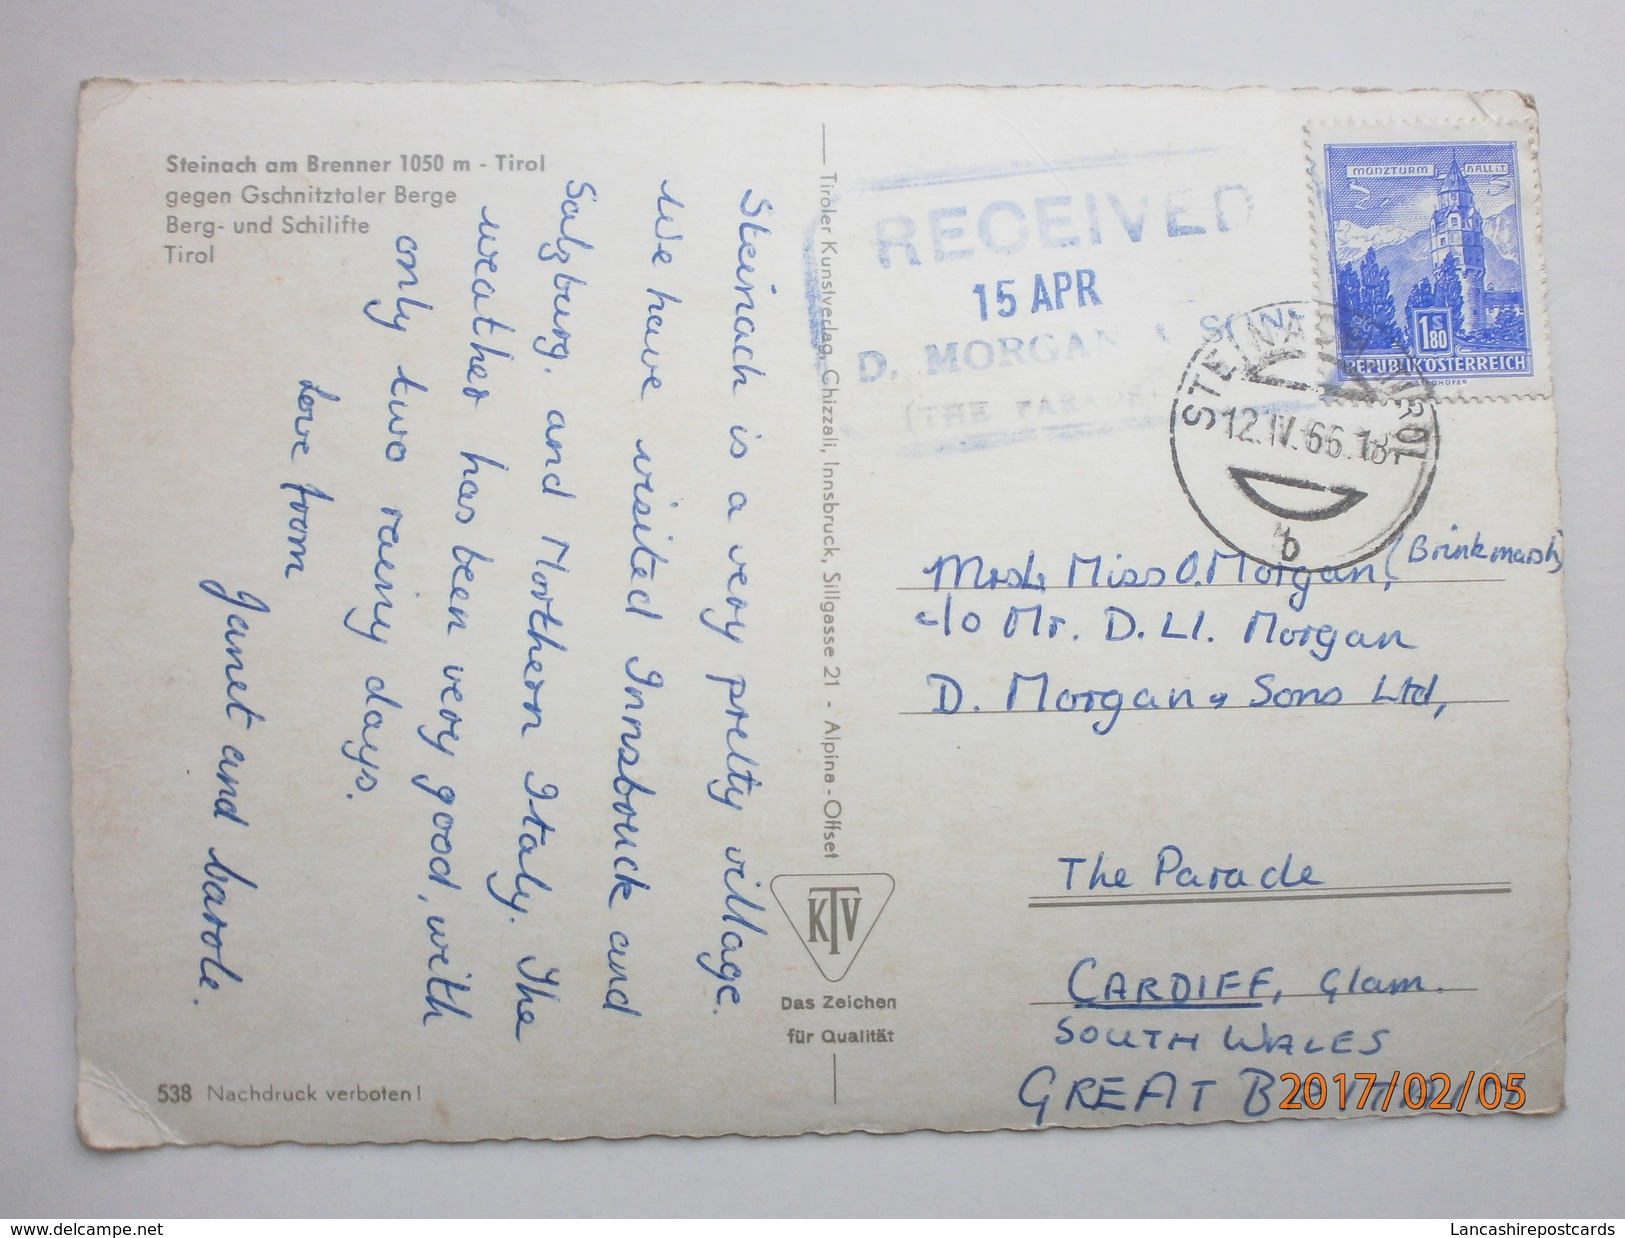 Steinach am Brenner 1050 m - Tirol
gegen Gschnitztaler Berge
Berg- und Schilifte
Tirol
Steinach is a very pretty village.
We have visited Innsbruck and
Salzburg, and Northern Italy. The
weather has been very good, with
only two rainy days.
Love from
Janet and Carole.
538 Nachdruck verboten!
Tiroler Kunstverlag, Chizzali, Innsbruck, Sillgasse 21 - Alpina-Offset
KTV
Das Zeichen
für Qualität
RECEIVED
15 APR
D. MORGAN & SON
(THE PARADE)
MÜNZTURM HALL i.T.
1 S 80
REPUBLIK ÖSTERREICH
STEINACH TIROL
12.IV.66.18
b
Miss O. Morgan, (Brinkmarsh)
c/o Mr. D. Ll. Morgan
D. Morgan & Sons Ltd,
The Parade
CARDIFF, Glam.
SOUTH WALES
GREAT BRITAIN
2017/02/05
www.delcampe.net
Lancashirepostcards